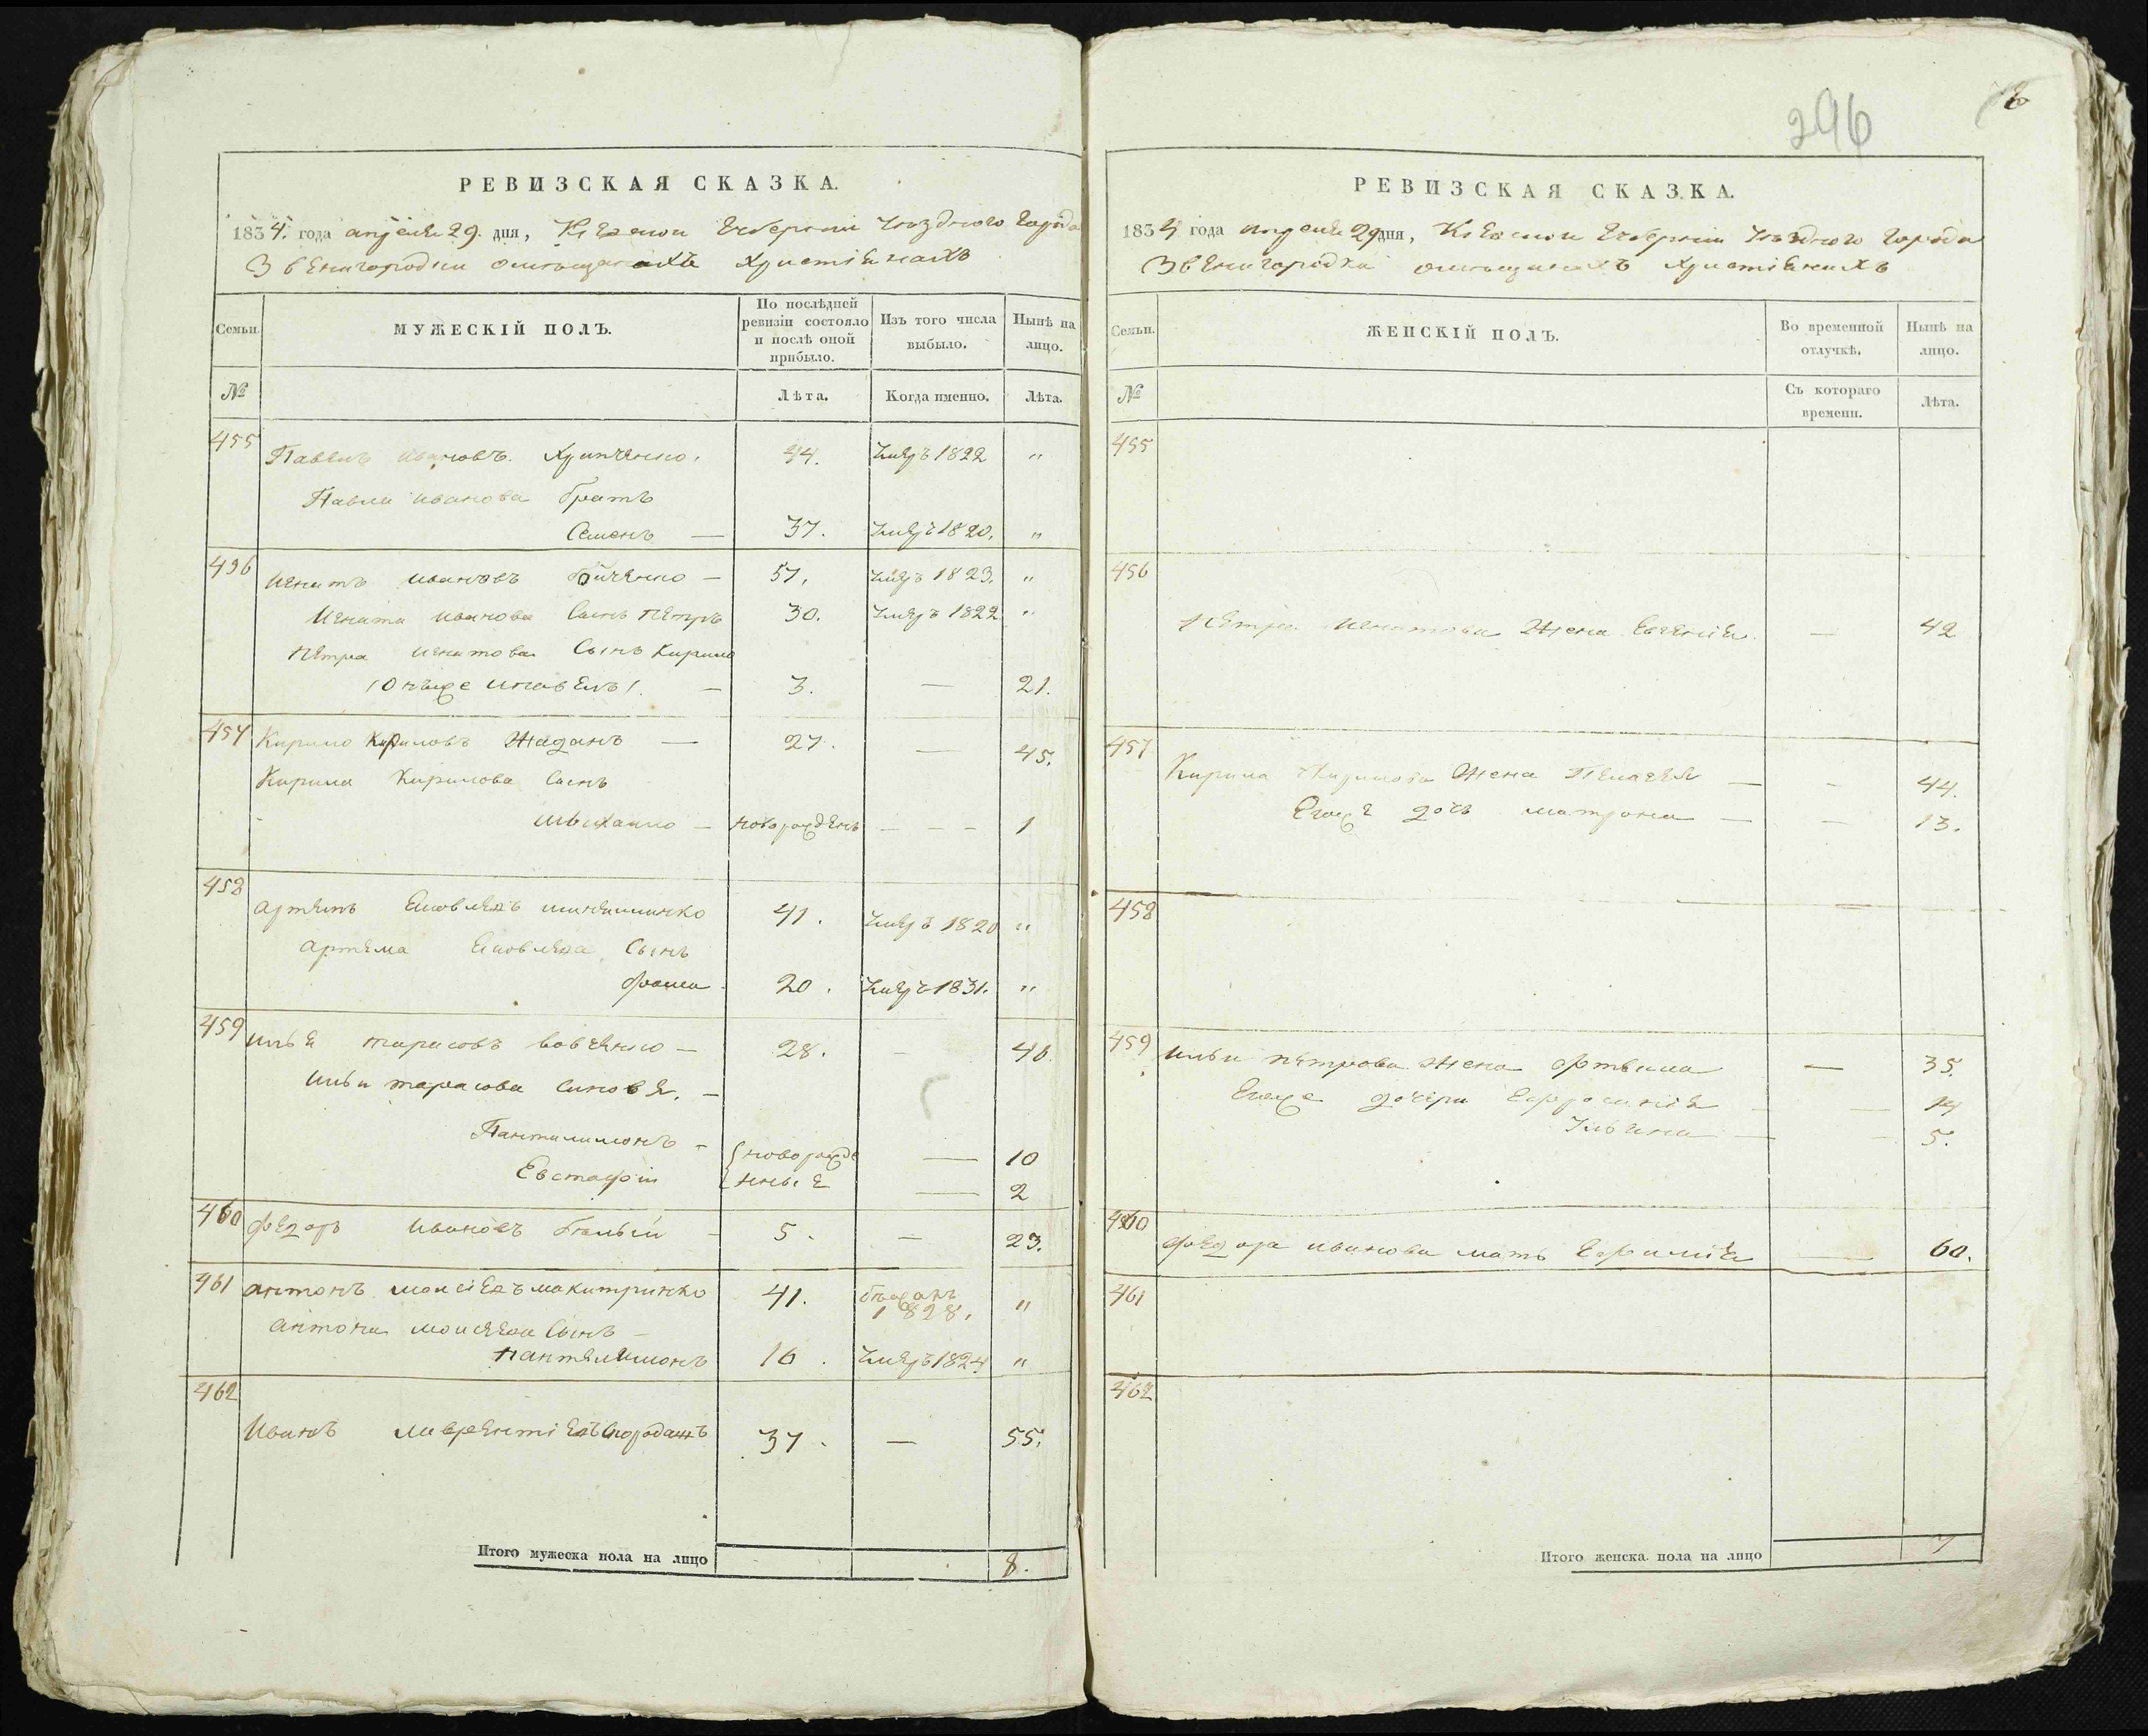 296
РЕВИЗСКАЯ СКАЗКА.
1834. года апреля 29. дня, Кіевской Губерніи Уѣзднаго Города
Звенигородки омещанахъ Христіянахъ
Семьи. МУЖЕСКІЙ ПОЛЪ. По послѣдней ревизіи состояло и послѣ оной прибыло. Изъ того числа выбыло. Нынѣ на лицо.
№ Лѣта. Когда именно. Лѣта.
455 Павелъ Ивановъ 44. умеръ 1822 "
Павла Иванова братъ
Семенъ — 37. умеръ 1820. "
456 Игнатъ Ивановъ — 57. умеръ 1823. "
Игната Иванова Сынъ Петръ 30. умеръ 1822 "
Петра Игнатова Сынъ Кирило
— 3. — 21.
457 Кирило Кириловъ Жаданъ — 27. — 45.
Кирила Кирилова Сынъ
Михайло — новорожденъ — — — 1
458 Артемъ Яковлевъ 41. умеръ 1820 "
Артема Яковлева Сынъ
Фома 20. умеръ 1831. "
459 Илья Тарасовъ Вовченко — 28. — 40.
Ильи Тарасова Синовя. —
Пантилимонъ — новорожде — 10
Евстафій нные — 2
460 Федоръ Ивановъ Белый — 5. — 23.
461 Антонъ Моисіевъ Макитринко 41. бежалъ 1828. "
Антона Моисеева Сынъ —
Пантелимонъ 16. умеръ 1824 "
462
Иванъ Лаврентіевъ 37. — 55.
Итого мужеска пола на лицо 8.
РЕВИЗСКАЯ СКАЗКА.
1834 года апреля 29 дня, Кіевской Губерніи Уѣзднаго Города
Звенигородки омещанахъ Христіянахъ
Семьи. ЖЕНСКІЙ ПОЛЪ. Во временной отлучкѣ. Нынѣ на лицо.
№ Съ котораго времени. Лѣта.
455
456
Петра Игнатова Жена Евгенія — 42
457
Кирила Кирилова Жена Пелагея — — 44.
Егоже дочь Матрона — — 13.
458
459 Ильи Петрова Жена Фотьина — 35.
Егоже дочери Ефросинія — 14
Ульяна — — 5.
460
Федора Иванова мать Ефимія — 60.
461
462
Итого женска. пола на лицо 7